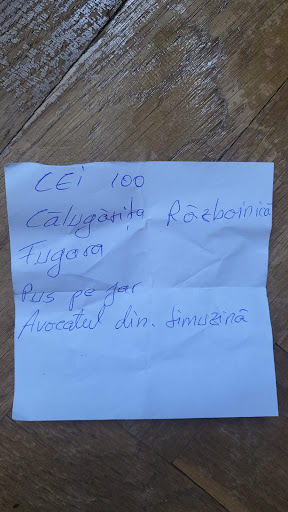 CEI 100
Călugărița Războinică
Fugara
Pus pe jar
Avocatul din. limuzină